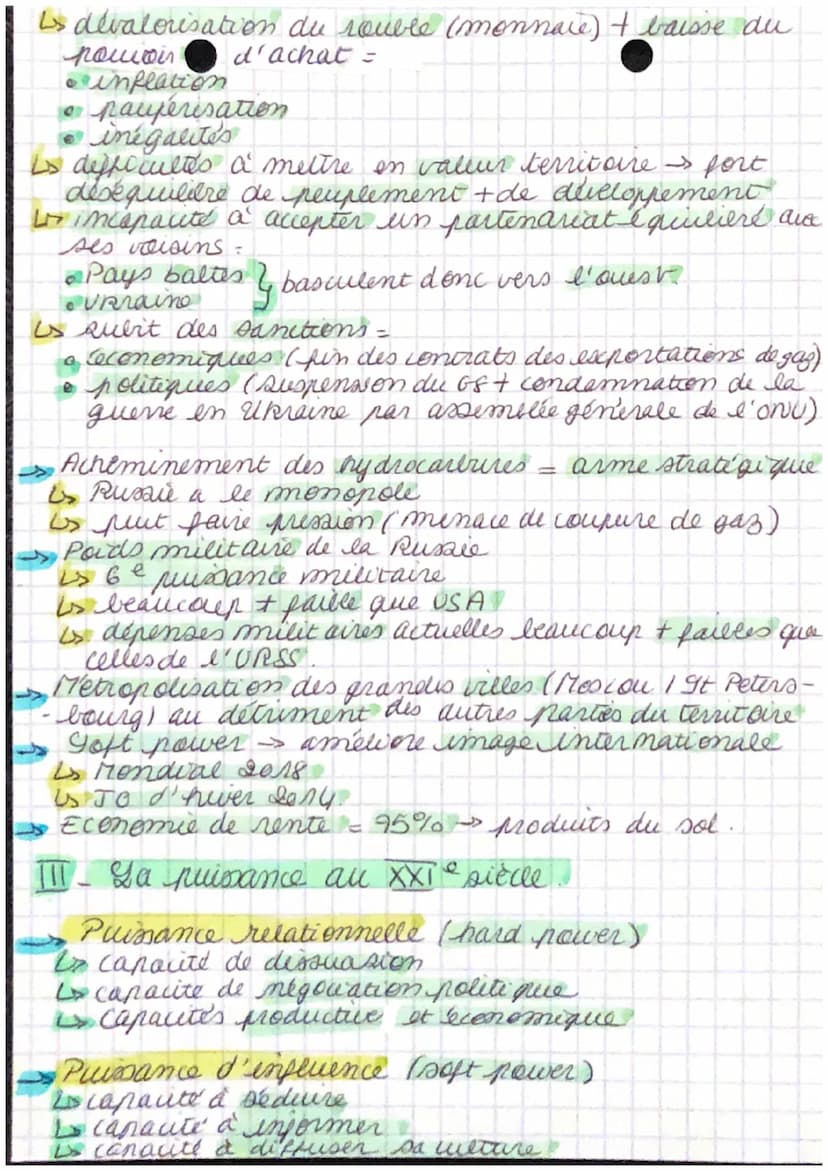 ↳ dévalorisation du rouble (monnaie) + baisse du
pouvoir d'achat =
• inflation
• paupérisation
• inégalités
↳ difficultés à mettre en valeur territoire → fort
déséquilibre de peuplement + de développement
↳ incapacité à accepter un partenariat équilibré avec
ses voisins =
• Pays baltes } basculent donc vers l'ouest.
• Ukraine
↳ subit des sanctions =
• économiques (fin des contrats des exportations de gaz)
• politiques (suspension du G8 + condamnation de la
guerre en Ukraine par assemblée générale de l'ONU)
→ Acheminement des hydrocarbures = arme stratégique
↳ Russie a le monopole
↳ peut faire pression (menace de coupure de gaz)
→ Poids militaire de la Russie
↳ 6e puissance militaire
↳ beaucoup + faible que USA
↳ dépenses militaires actuelles beaucoup + faibles que
celles de l'URSS.
→ Métropolisation des grandes villes (Moscou / St Peters-
-bourg) au détriment des autres parties du territoire
→ Soft power → améliore image internationale
↳ Mondial 2018
↳ JO d'hiver 2014.
→ Economie de rente = 95% → produits du sol.
III - La puissance au XXIe siècle.
→ Puissance relationnelle (hard power)
↳ capacité de dissuasion
↳ capacité de négociation politique
↳ capacités productive et économique
→ Puissance d'influence (soft power)
↳ capacité à séduire
↳ capacité à informer
↳ capacité à diffuser sa culture